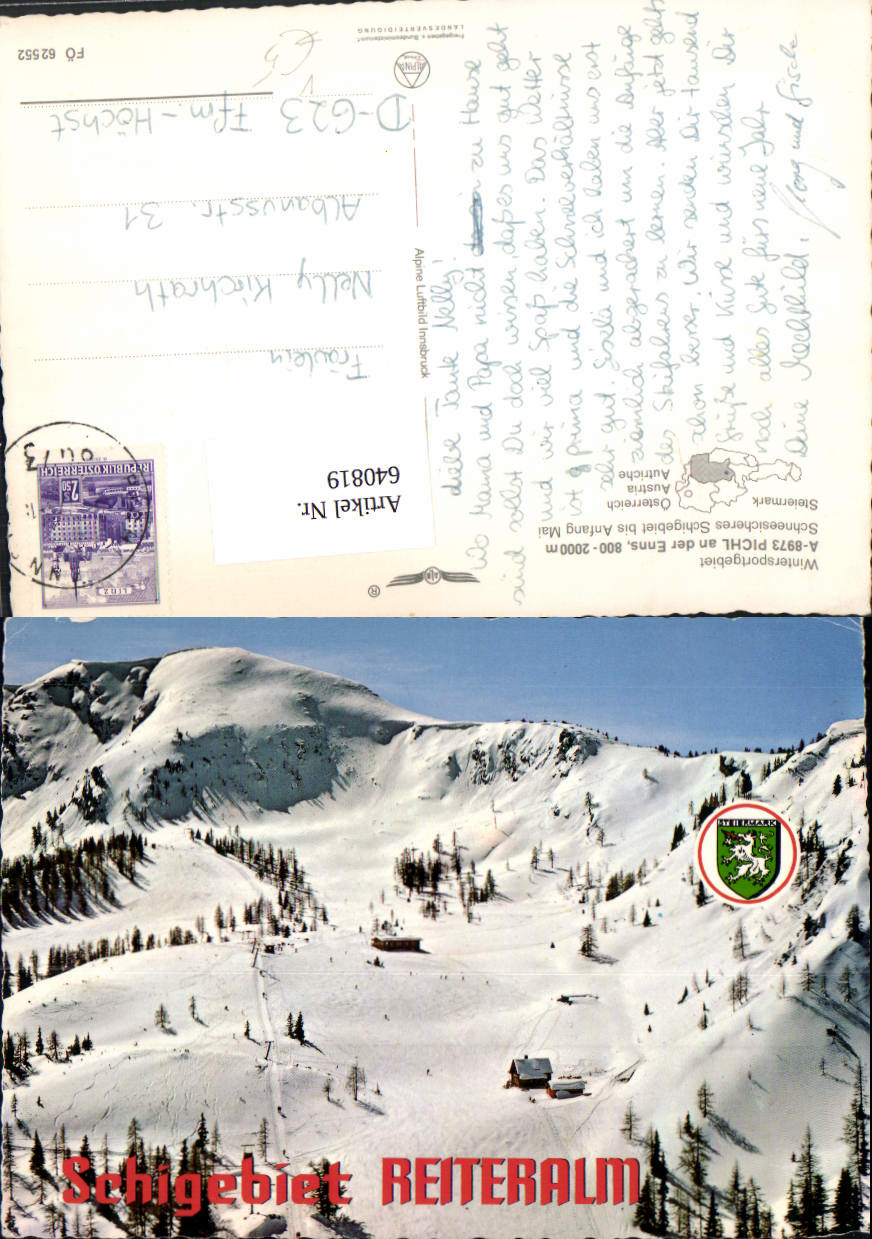 Wintersportgebiet
A-8973 PICHL an der Enns, 800 - 2000 m
Schneesicheres Schigebiet bis Anfang Mai
Steiermark
Österreich
Austria
Autriche
®
Artikel Nr.
640819
LINZ
S 2.50
REPUBLIK ÖSTERREICH
Liebe Tante Nelly!
Wo Mama und Papa nicht zu Hause
sind sollst Du doch wissen, daß es uns gut geht
und wir viel Spaß haben. Das Wetter
ist prima und die Schneeverhältnisse
sehr gut. Gisela und ich haben uns erst
ziemlich abgerackert um die Anfänge
des Skifahrens zu lernen. Aber jetzt geht's
schon besser. Wir senden Dir tausend
Grüße und Küsse und wünschen Dir
noch alles Gute fürs neue Jahr
Deine Mechthild,
und Gisela
Fräulein
Nelly Kirchrath
Albanusstr. 31
D-623 Ffm.-Höchst
Alpine Luftbild Innsbruck
ALPINE
Freigegeben v. Bundesministerium f.
LANDESVERTEIDIGUNG
FÖ 62552
STEIERMARK
Schigebiet REITERALM